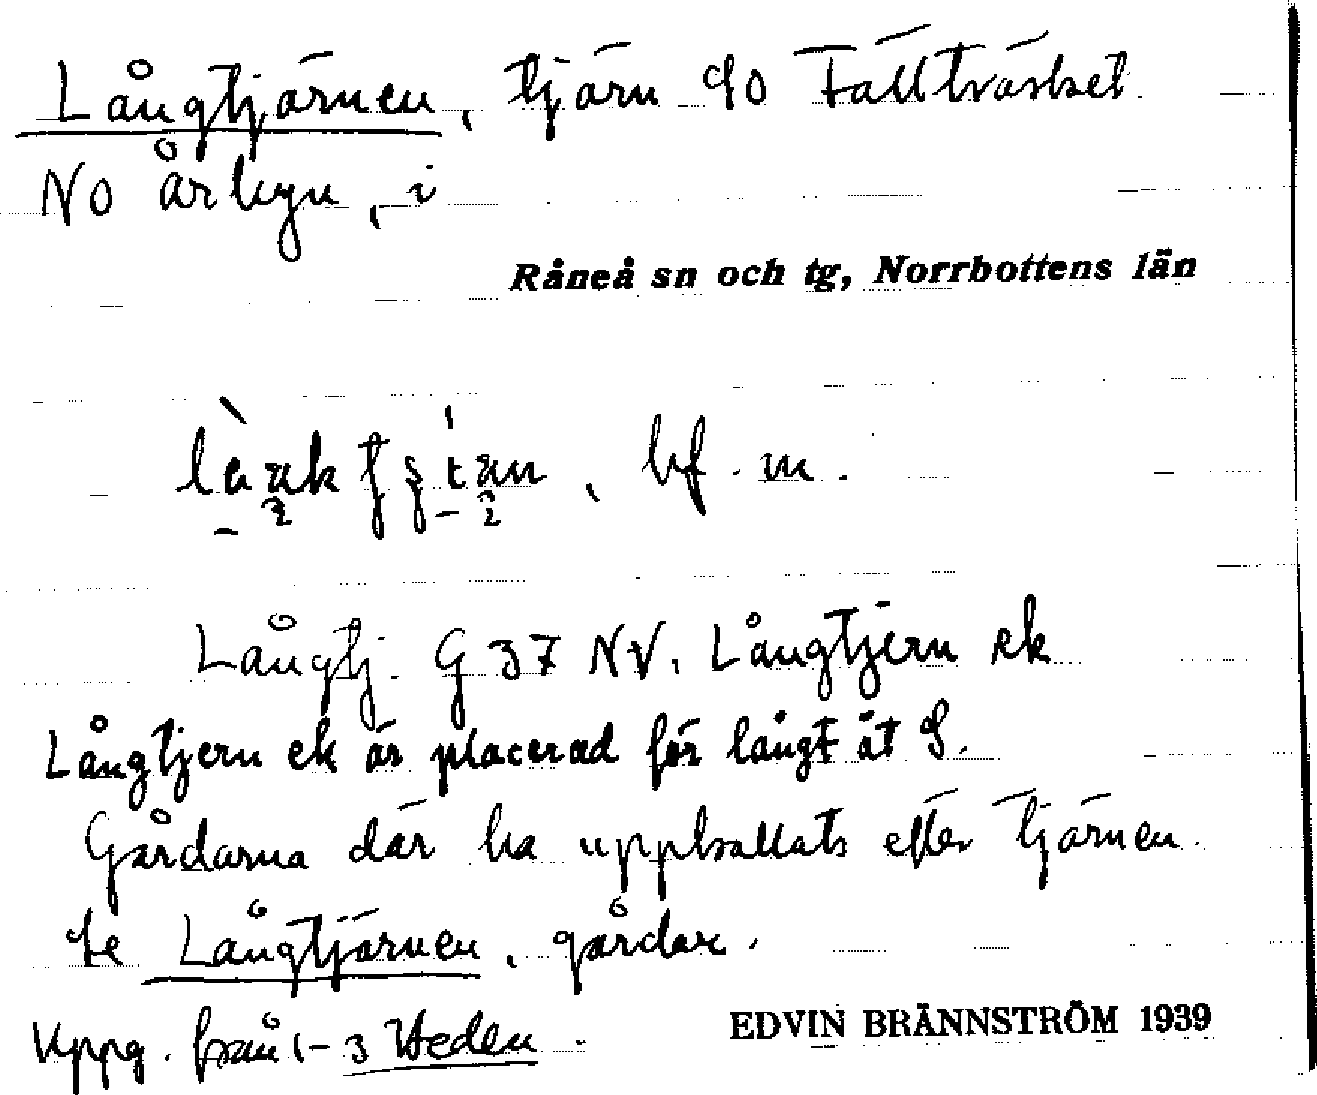 Långtjärnen, tjärn SO Fällträsket
NO årkyn, i
Råneå sn och tg, Norrbottens län
bf. m.
Långtj. G 37 NV. Långtjern ek
Långtjern ek är placerad för långt åt S.
Gårdarna där ha uppkallats efter tjärnen.
Se Långtjärnen, gårdar.
Uppg. från 1-3 Heden.
EDVIN BRÄNNSTRÖM 1939